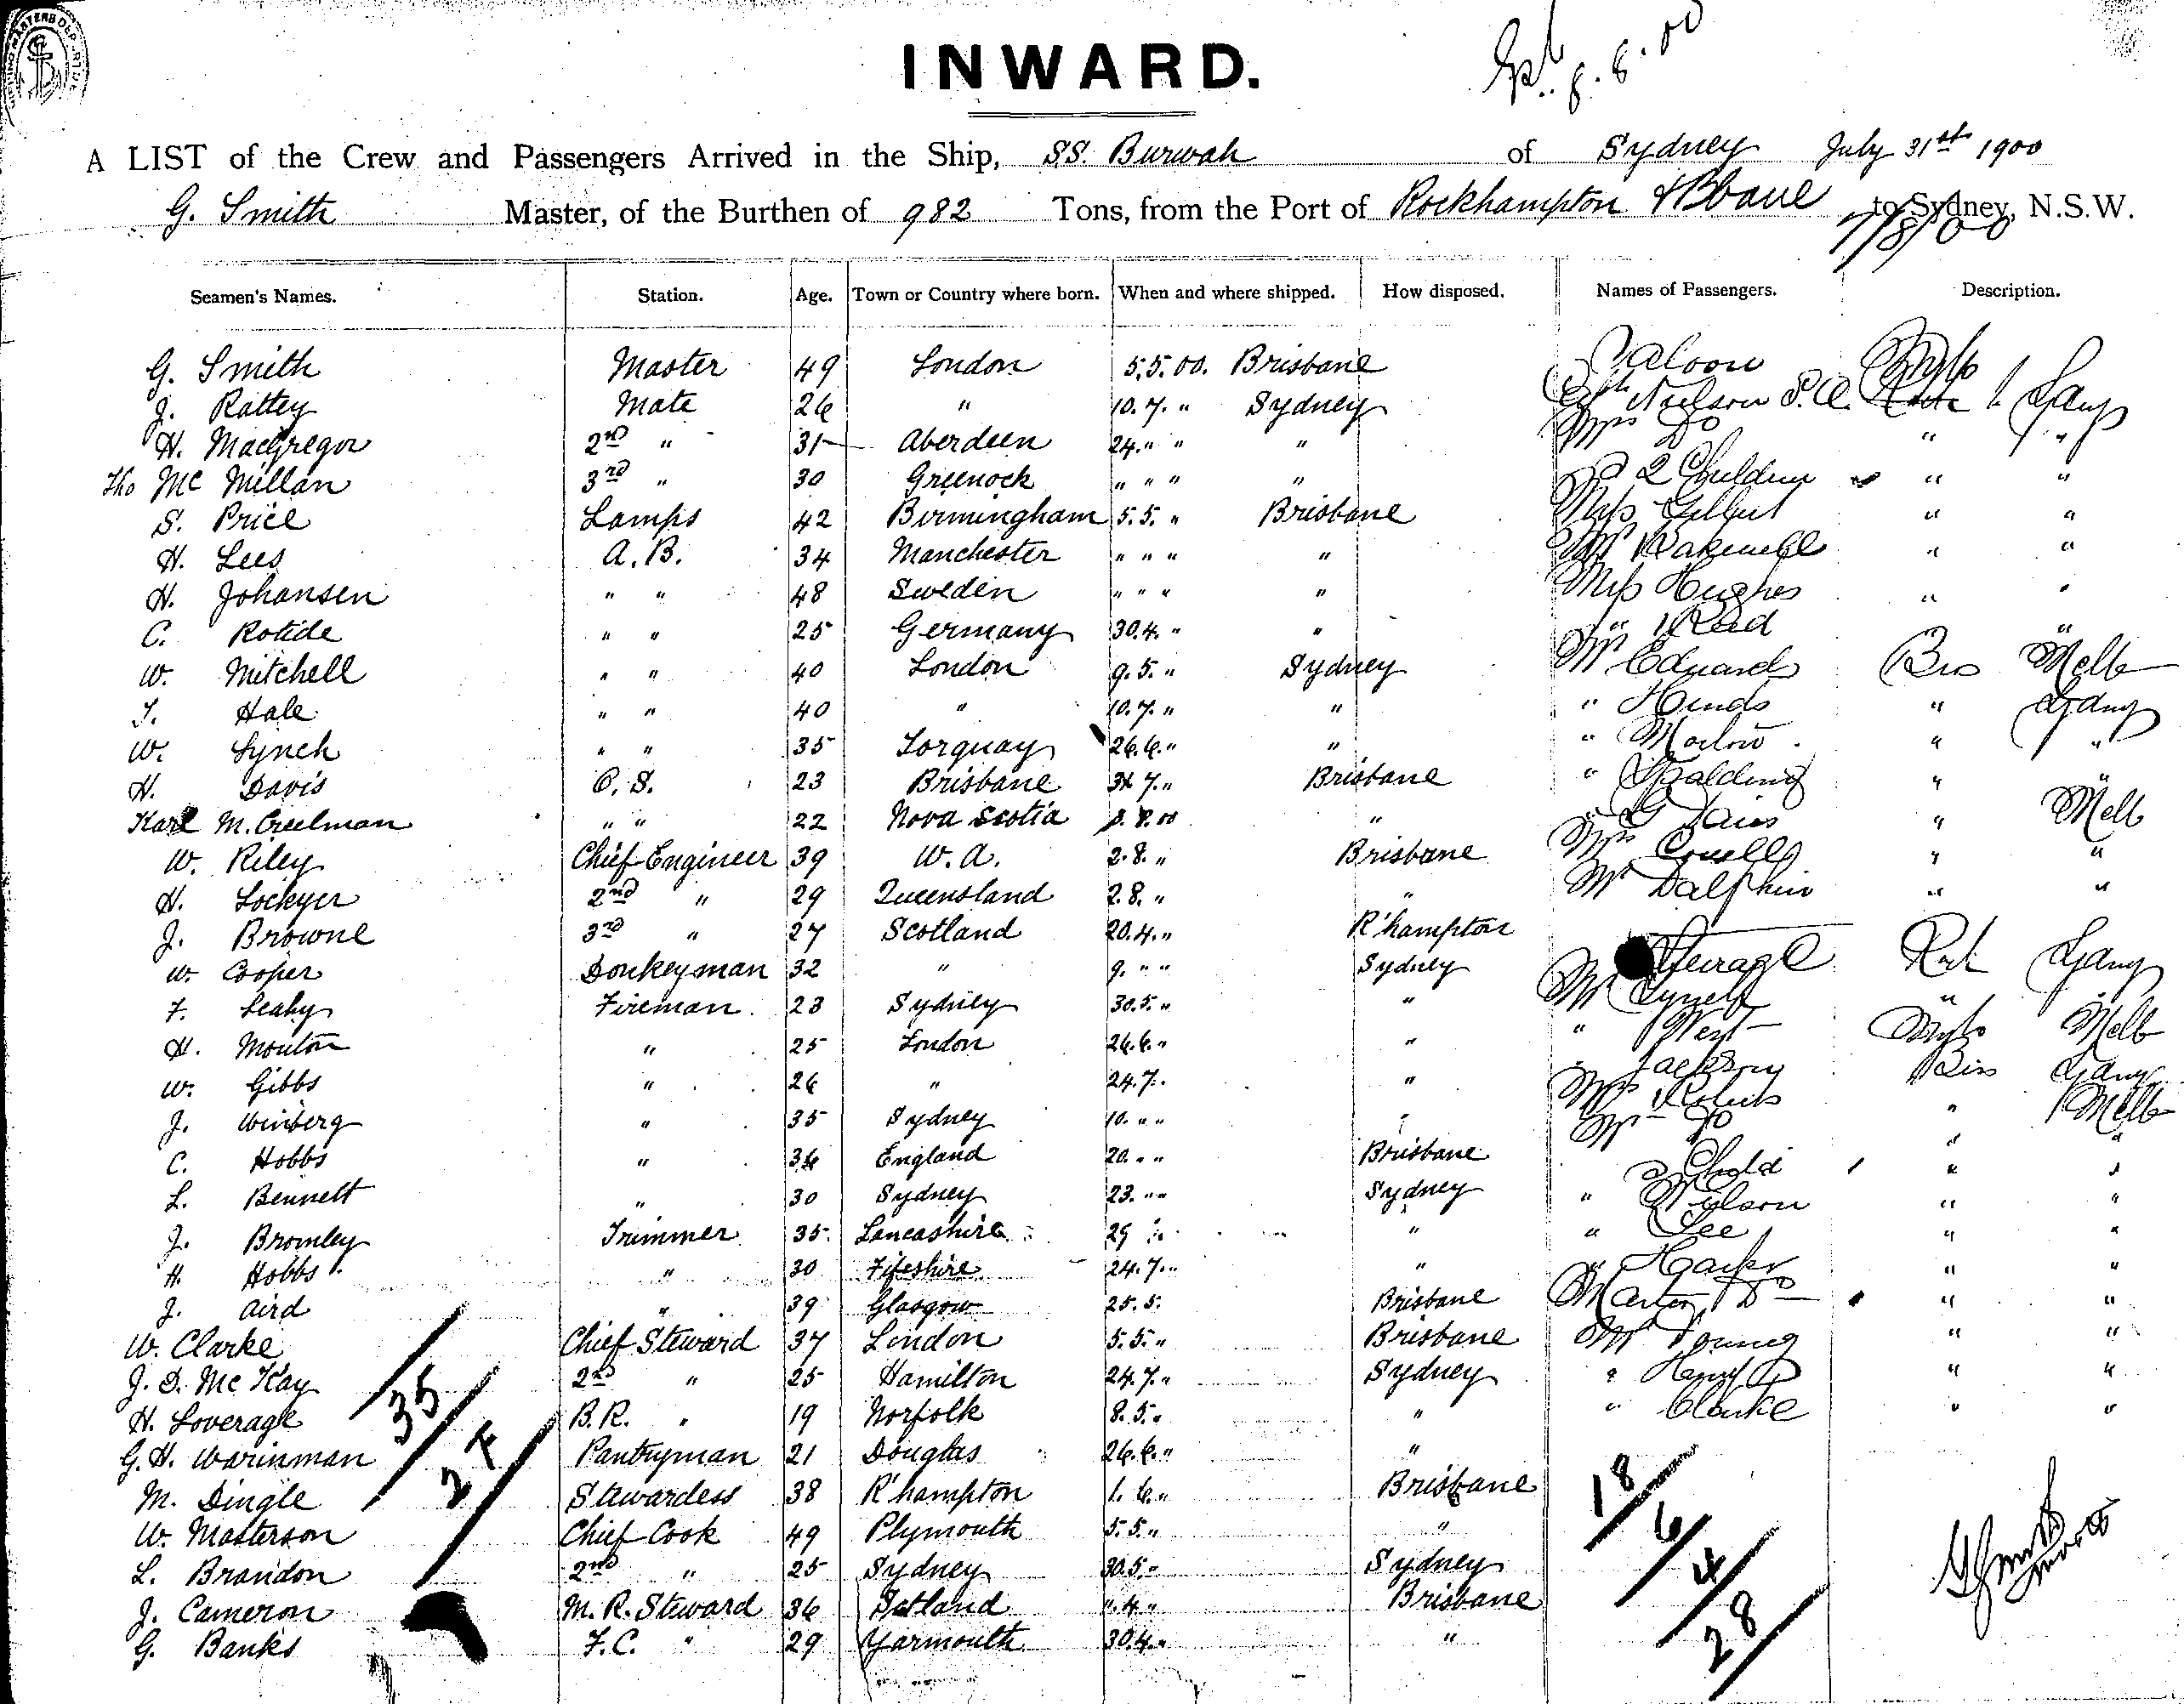 INWARD.
8.8.00
A LIST of the Crew and Passengers Arrived in the Ship, SS. Burwah of Sydney July 31st 1900
G. Smith Master, of the Burthen of 982 Tons, from the Port of Rockhampton & Bbane to Sydney, N.S.W.
7/8/00
Seamen's Names. Station. Age. Town or Country where born. When and where shipped. How disposed. Names of Passengers. Description.
G. Smith Master 49 London 5.5.00. Brisbane Saloon
J. Rattey Mate 26 " 10.7. " Sydney Neilson
H. MacGregor 2nd " 31 Aberdeen 24. " " " Mrs Do " "
Tho Mc Millan 3rd " 30 Greenock " " " " 2 Children " "
S. Price Lamps 42 Birmingham 5.5. " Brisbane Miss Gilbert " "
H. Lees A.B. 34 Manchester " " " " Mr Bakewell " "
H. Johansen " " 48 Sweden " " " " Miss Hughes " "
C. Rotide " " 25 Germany 30.4. " " " Reid "
W. Mitchell " " 40 London 9.5. " Sydney Mr Edwards Bris Melb
T. Hale " " 40 " 10.7. " " " Hinds " Sydney
W. Lynch " " 35 Torquay 26.6. " " " Marlow " "
H. Davis O.S. 23 Brisbane 7. " Brisbane " Spalding " "
Karl M. Creelman " " 22 Nova Scotia 8.00 " " " Melb
W. Riley Chief Engineer 39 W.A. 2.8. " Brisbane Mrs " "
H. Lockyer 2nd " 29 Queensland 2.8. " " Mr Dalphin " "
J. Browne 3rd " 27 Scotland 20.4. " R'hampton
W. Cooper Donkeyman 32 " 9. " " Sydney Steerage Rock Sydney
F. Leahy Fireman 23 Sydney 30.5. " " Mr Lynch " "
H. Moulton " 25 London 26.6. " " " West Melb
W. Gibbs " 26 " 24.7. " " Jackson Bris Sydney
J. Winberg " 35 Sydney 10. " " " Mrs Roberts " Melb
C. Hobbs " 36 England 20. " " Brisbane Mr Do " "
L. Bennett " 30 Sydney 23. " " Sydney Child " "
J. Bromley Trimmer 35 Lancashire 29 " " Wilson " "
H. Hobbs " 30 Fifeshire 24.7. " " " Lee " "
J. Aird " 39 Glasgow 25.5. Brisbane " "
W. Clarke Chief Steward 37 London 5.5. " Brisbane Mr Young " "
J. D. Mc Kay 2nd " 25 Hamilton 24.7. " Sydney " " "
H. Loverage B.R. " 19 Norfolk 8.5. " " " Clarke " "
G. H. Warinman Pantryman 21 Douglas 26.6. " "
M. Dingle Stewardess 38 R'hampton 1.6. " Brisbane
W. Masterson Chief Cook 49 Plymouth 5.5. " "
L. Brandon 2nd " 25 Sydney 30.5. " Sydney
J. Cameron M.R. Steward 36 4. " Brisbane
G. Banks F.C. " 29 Yarmouth 30.4. " "
35
18/6/4/28